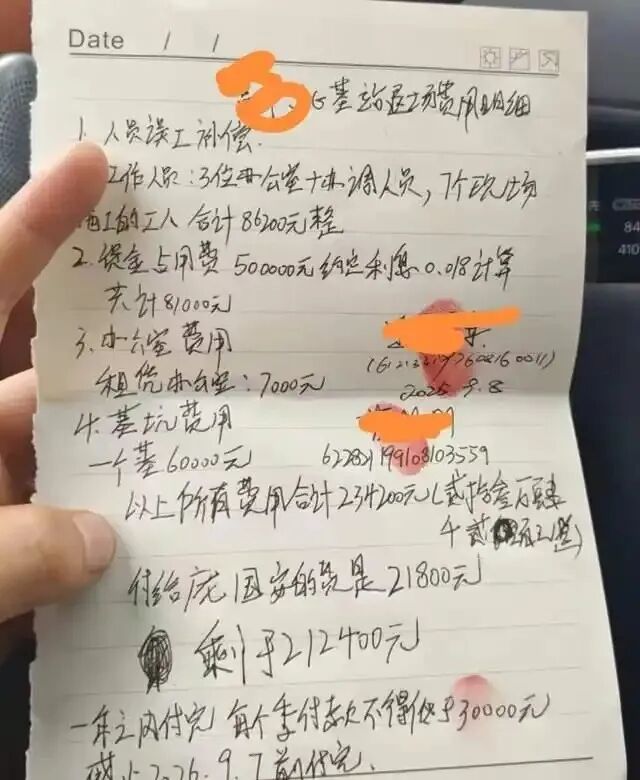 Date / /
G基站退场费用明细
1. 人员误工补偿.
工作人员：3位办公室+协调人员，7个现场
施工的工人 合计86200元整
2. 资金占用费 500000元约定利息0.018计算
共计81000元
3. 办公室费用
租凭办公室：7000元
2025.9.8
4. 基坑费用
一个基60000元
以上所有费用合计234200元（贰拾叁万肆
付给庞国安的费是21800元
剩于212400元
一年之内付完 每个季付款不得低于30000元
截止2026.9.7前付完.
84
410